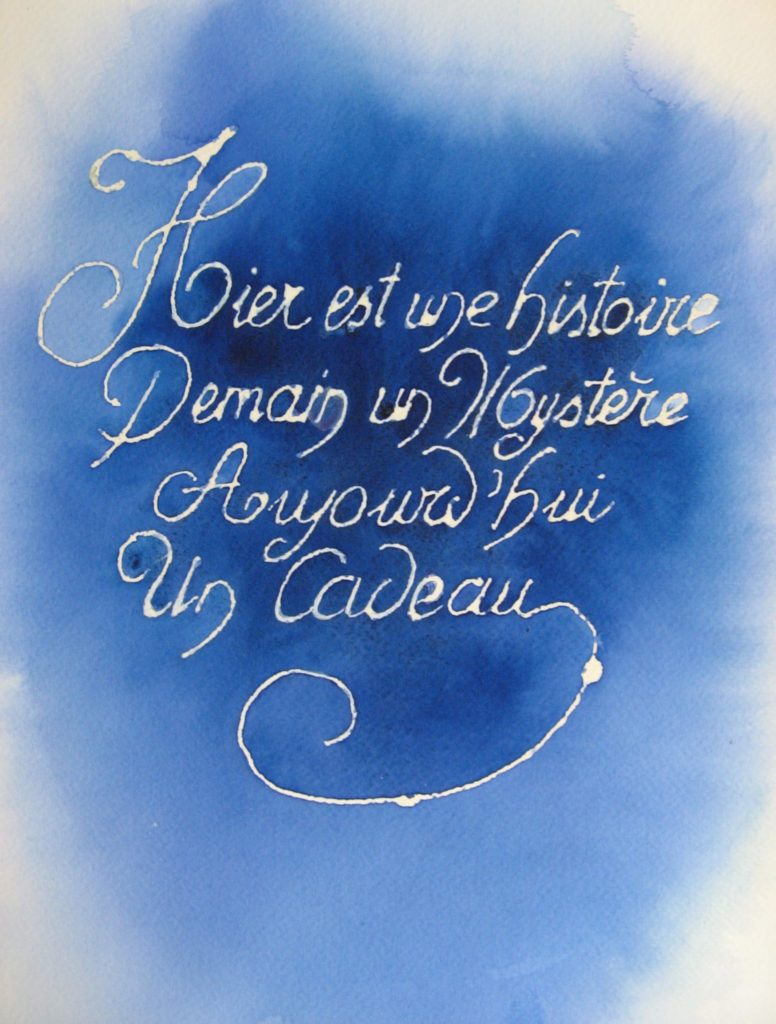 Hier est une histoire
Demain un Mystère
Aujourd'hui
Un Cadeau